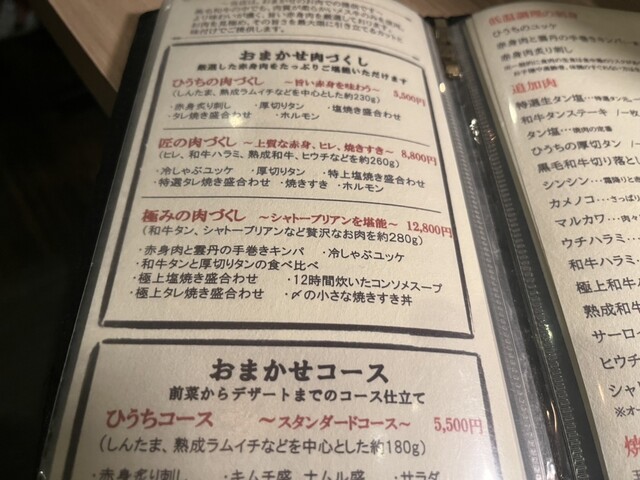 おまかせ肉づくし
厳選した赤身肉をたっぷりご堪能いただけます
ひうちの肉づくし ～旨い赤身を味わう～ 5,500円
(しんたま、熟成ラムイチなどを中心とした約230g)
・赤身炙り刺し ・厚切りタン ・塩焼き盛合わせ
・タレ焼き盛合わせ ・ホルモン
匠の肉づくし ～上質な赤身、ヒレ、焼きすき～ 8,800円
(ヒレ、和牛ハラミ、熟成和牛、ヒウチなどを約260g)
・冷しゃぶユッケ ・厚切りタン ・特上塩焼き盛合わせ
・特選タレ焼き盛合わせ ・焼きすき ・ホルモン
極みの肉づくし ～シャトーブリアンを堪能～ 12,800円
(和牛タン、シャトーブリアンなど贅沢なお肉を約280g)
・赤身肉と雲丹の手巻きキンパ ・冷しゃぶユッケ
・和牛タンと厚切りタンの食べ比べ
・極上塩焼き盛合わせ ・12時間炊いたコンソメスープ
・極上タレ焼き盛合わせ ・〆の小さな焼きすき丼
おまかせコース
前菜からデザートまでのコース仕立て
ひうちコース ～スタンダードコース～ 5,500円
(しんたま、熟成ラムイチなどを中心とした約180g)
・赤身炙り刺し ・キムチ盛、ナムル盛 ・サラダ
ひうちのユッケ
赤身肉と雲丹の手巻きキンパ
赤身肉炙り刺し
追加肉
特選生タン塩
和牛タンステーキ
タン塩…焼肉の定番
ひうちの厚切タン
黒毛和牛切り落と
シンシン…霜降りと
カメノコ…さっぱり
マルカワ…肉々
ウチハラミ…
和牛ハラミ
極上和牛ハ
熟成和牛
サーロー
ヒウチ
シャト
※オー
焼